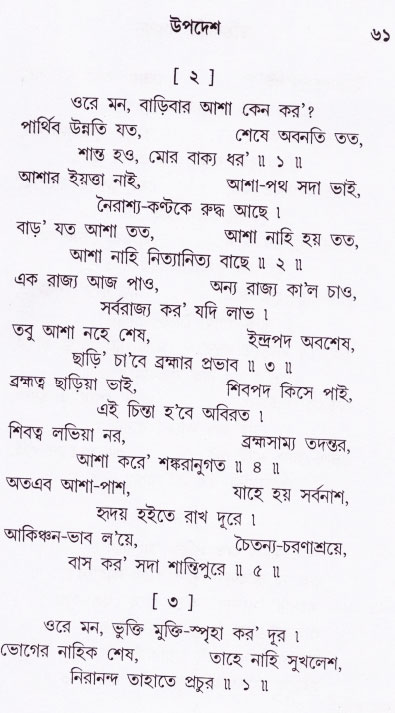 উপদেশ ৬১
[ ২ ]
ওরে মন, বাড়িবার আশা কেন কর’?
পার্থিব উন্নতি যত, শেষে অবনতি তত,
শান্ত হও, মোর বাক্য ধর’ ॥ ১ ॥
আশার ইয়ত্তা নাই, আশা-পথ সদা ভাই,
নৈরাশ্য-কণ্টকে রুদ্ধ আছে ।
বাড়’ যত আশা তত, আশা নাহি হয় তত,
আশা নাহি নিত্যানিত্য বাছে ॥ ২ ॥
এক রাজ্য আজ পাও, অন্য রাজ্য কা’ল চাও,
সর্বরাজ্য কর’ যদি লাভ ।
তবু আশা নহে শেষ, ইন্দ্রপদ অবশেষ,
ছাড়ি’ চা’বে ব্রহ্মার প্রভাব ॥ ৩ ॥
ব্রহ্মত্ব ছাড়িয়া ভাই, শিবপদ কিসে পাই,
এই চিন্তা হ’বে অবিরত ।
শিবত্ব লভিয়া নর, ব্রহ্মসাম্য তদন্তর,
আশা করে’ শঙ্করানুগত ॥ ৪ ॥
অতএব আশা-পাশ, যাহে হয় সর্বনাশ,
হৃদয় হইতে রাখ দূরে ।
আকিঞ্চন-ভাব ল’য়ে, চৈতন্য-চরণাশ্রয়ে,
বাস কর’ সদা শান্তিপুরে ॥ ৫ ॥
[ ৩ ]
ওরে মন, ভুক্তি মুক্তি-স্পৃহা কর’ দূর ।
ভোগের নাহিক শেষ, তাহে নাহি সুখলেশ,
নিরানন্দ তাহাতে প্রচুর ॥ ১ ॥